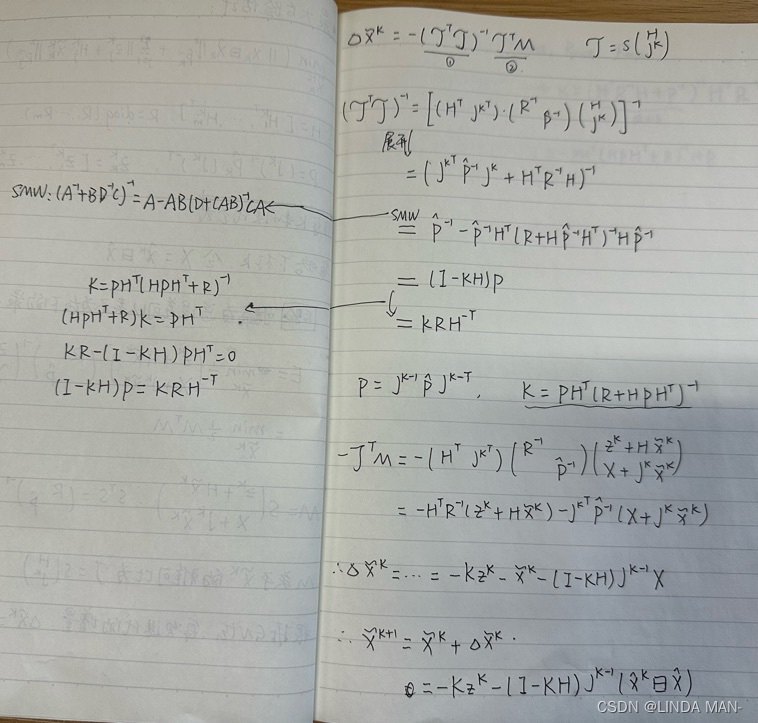 SMW: (A⁻¹+BD⁻¹C)⁻¹=A-AB(D+CAB)⁻¹CA
K=PHᵀ(HPHᵀ+R)⁻¹
(HPHᵀ+R)K=PHᵀ
KR-(I-KH)PHᵀ=0
(I-KH)P=KRH⁻ᵀ
Δx̃ᵏ = -(JᵀJ)⁻¹ JᵀM J=S(H Jᵏ)
① ②
(JᵀJ)⁻¹=[(Hᵀ Jᵏᵀ)·(R⁻¹ P̂⁻¹)(H Jᵏ)]⁻¹
展开
=(Jᵏᵀ P̂⁻¹Jᵏ + HᵀR⁻¹H)⁻¹
SMW
= P̂⁻¹-P̂⁻¹Hᵀ(R+HP̂⁻¹Hᵀ)⁻¹HP̂⁻¹
= (I-KH)P
= KRH⁻ᵀ
P= Jᵏ⁻¹ P̂ Jᵏ⁻ᵀ, K=PHᵀ(R+HPHᵀ)⁻¹
-JᵀM=-(Hᵀ Jᵏᵀ)(R⁻¹ P̂⁻¹)(zᵏ+Hx̃ᵏ X+Jᵏx̃ᵏ)
= -HᵀR⁻¹(zᵏ+Hx̃ᵏ)-JᵏᵀP̂⁻¹(X+Jᵏx̃ᵏ)
∴Δx̃ᵏ=···= -Kzᵏ-x̃ᵏ-(I-KH)Jᵏ⁻¹X
∴ x̃ᵏ⁺¹=x̃ᵏ+Δx̃ᵏ.
=-Kzᵏ-(I-KH)Jᵏ⁻¹(x̂ᵏ⊟x̂)
CSDN @LINDA MAN-